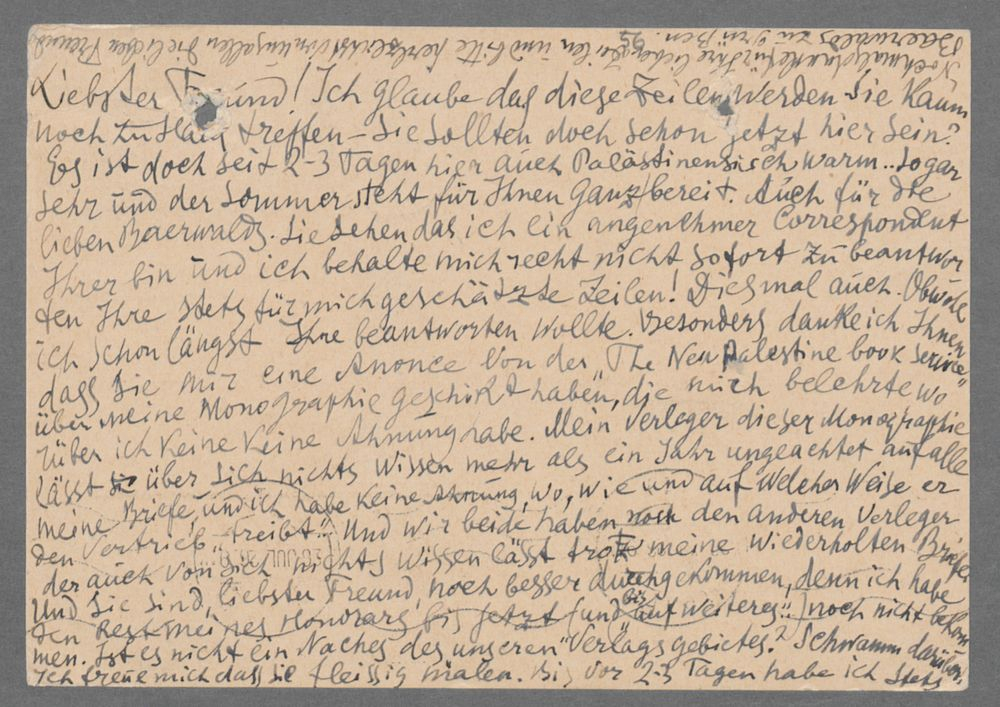 Liebster Freund! Ich glaube das diese Zeilen werden Sie kaum
noch zu Haus treffen – Sie sollten doch schon jetzt hier sein?
Es ist doch seit 2-3 Tagen hier auch Palästinensisch warm.. sogar
sehr und der Sommer steht für Ihnen ganz bereit. Auch für die
lieben Baerwalds. Sie sehen das ich ein angenehmer Correspondent
Ihrer bin und ich behalte mich recht nicht sofort zu beantwor
ten Ihre stets für mich geschätzte Zeilen! Diesmal auch. Obwohl
ich schon längst Ihne beantworten wollte. Besonders danke ich Ihnen
dass Sie mir eine Anonce von der „The New Palestine book Service"
über meine Monographie geschikt haben, die mich belehrte wo
rüber ich keine keine Ahnung habe. Mein Verleger dieser Monographie
lässt über sich nichts wissen mehr als ein Jahr ungeachtet auf alle
meine Briefe, und ich habe keine Ahnung, wo, wie und auf welcher Weise er
den Vertrieb „treibt". Und wir beide haben noch den anderen Verleger
der auch von sich nichts wissen lässt trotz meine wiederholten Briefe
Und Sie sind, liebster Freund, noch besser durchgekommen, denn ich habe
den Rest meines Honorars bis jetzt (und bis auf weiteres..) noch nicht bekom
men. Ist es nicht ein Naches des unseren "Verlagsgebietes? Schwamm darüber.
Ich freue mich dass Sie fleissig malen. Bis vor 2-3 Tagen habe ich stets
Nochmals danke für Ihre lieben Zeilen und bitte herzlichst von uns allen die lieben Freund
Baerwalds zu grüßen.